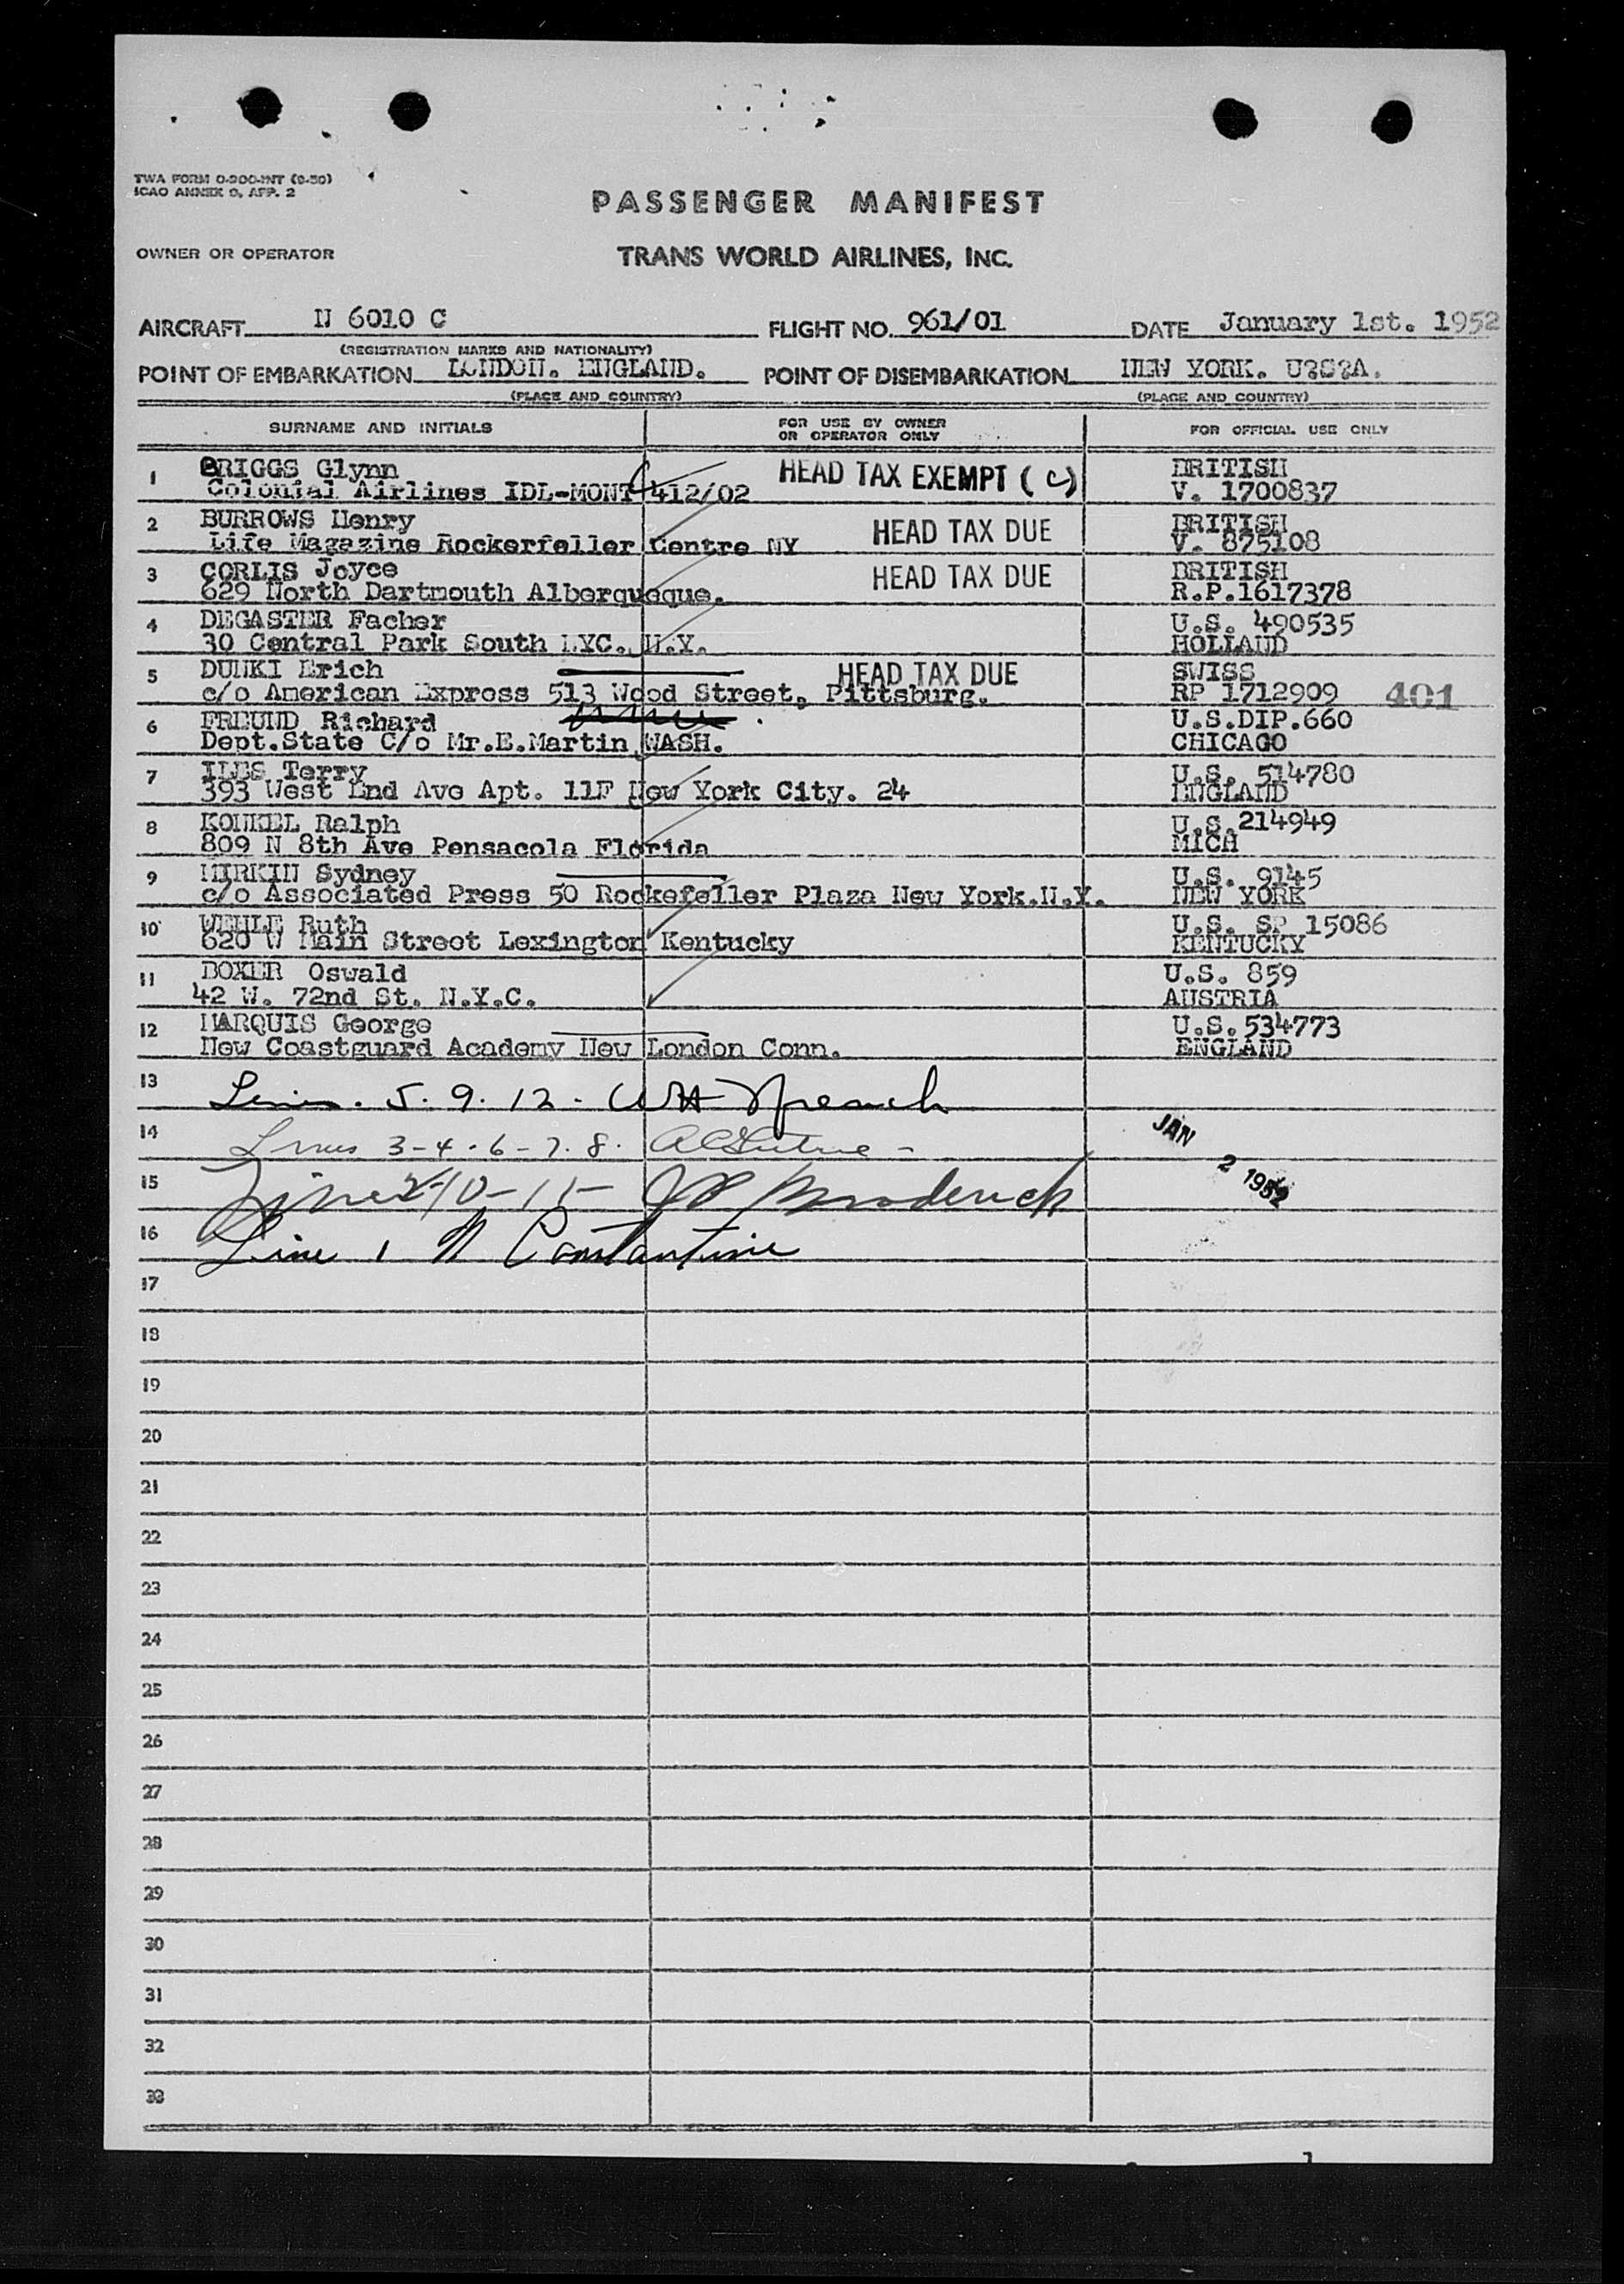 TWA FORM O-200-INT (9-50)
ICAO ANNEX 9, APP. 2
PASSENGER MANIFEST
OWNER OR OPERATOR
TRANS WORLD AIRLINES, INC.
AIRCRAFT N 6010 C FLIGHT NO. 961/01 DATE January 1st. 1952
(REGISTRATION MARKS AND NATIONALITY)
POINT OF EMBARKATION LONDON. ENGLAND. POINT OF DISEMBARKATION NEW YORK. U?S?A.
(PLACE AND COUNTRY) (PLACE AND COUNTRY)
SURNAME AND INITIALS FOR USE BY OWNER OR OPERATOR ONLY FOR OFFICIAL USE ONLY
1 BRIGGS Glynn HEAD TAX EXEMPT (c) BRITISH
Colonial Airlines IDL-MONT 412/02 V. 1700837
2 BURROWS Henry HEAD TAX DUE BRITISH
Life Magazine Rockerfeller Centre NY V. 875108
3 CORLIS Joyce HEAD TAX DUE BRITISH
629 North Dartmouth Alberqueque. R.P.1617378
4 DEGASTER Facher U.S. 490535
30 Central Park South NYC. N.Y. HOLLAND
5 DUNKI Erich HEAD TAX DUE SWISS
c/o American Express 513 Wood Street, Pittsburg. RP 1712909 401
6 FREUND Richard U.S.DIP.660
Dept.State C/o Mr.E.Martin WASH. CHICAGO
7 ILES Terry U.S. 514780
393 West End Ave Apt. 11F New York City. 24 ENGLAND
8 KONKEL Ralph U.S.214949
809 N 8th Ave Pensacola Florida MICH
9 MIRKIN Sydney U.S. 9145
c/o Associated Press 50 Rockefeller Plaza New York.N.Y. NEW YORK
10 WEHLE Ruth U.S. SP 15086
620 W Main Street Lexington Kentucky KENTUCKY
11 BOXER Oswald U.S. 859
42 W. 72nd St. N.Y.C. AUSTRIA
12 MARQUIS George U.S.534773
New Coastguard Academy New London Conn. ENGLAND
13 Lines. 5. 9. 12.
14 Lines 3-4.6-7.8. JAN 2 1952
15 Lines 2-10-11- Broderick
16 Line 1 N Constantine
17
18
19
20
21
22
23
24
25
26
27
28
29
30
31
32
33
1